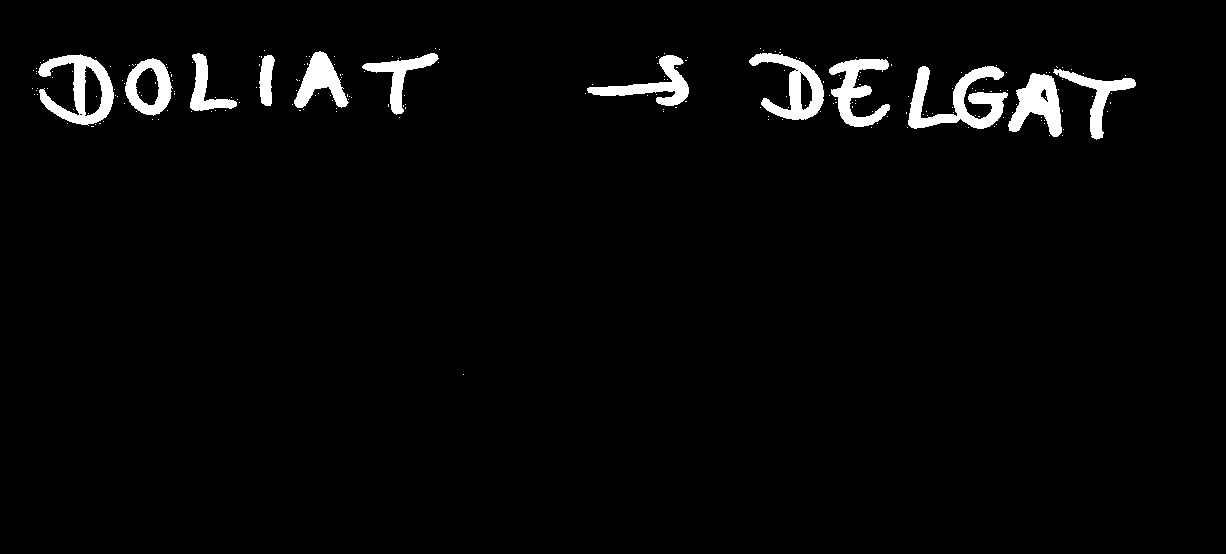 DOLIAT → DELGAT